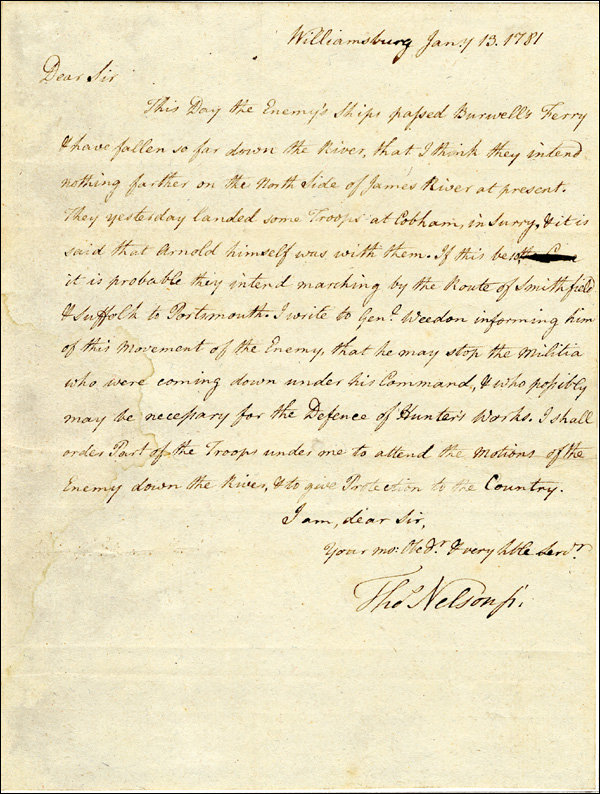 Williamsburg Jany 13. 1781
Dear Sir
This Day the Enemy's Ships passed Burwell's Ferry
& have fallen so far down the River, that I think they intend
nothing farther on the North Side of James River at present.
They yesterday landed some Troops at Cobham, in Surry, & it is
said that Arnold himself was with them. If this be so,
it is probable they intend marching by the Route of Smithfield
& Suffolk to Portsmouth. I write to Genl. Weedon informing him
of this Movement of the Enemy, that he may stop the Militia
who were coming down under his Command, & who possibly
may be necessary for the Defence of Hunter's Works. I shall
order Part of the Troops under me to attend the Motions of the
Enemy down the River, & to give Protection to the Country.
I am, dear Sir,
Your mo: Obedt. & very hble Servt.
Thos Nelson jr.